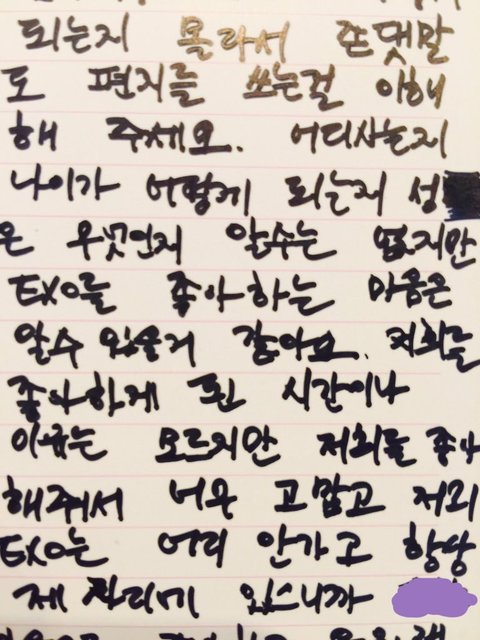 되는지 몰라서 존댓말
도 편지를 쓰는걸 이해
해 주세요. 어디사는지
나이가 어떻게 되는지 성
은 무엇인지 알수는 없지만
EXO를 좋아하는 마음은
알수 있을거 같아요. 저희를
좋아하게 된 시간이나
이유는 모르지만 저희를 좋아
해줘서 너무 고맙고 저희
EXO는 어디 안가고 항상
제 자리에 있으니까